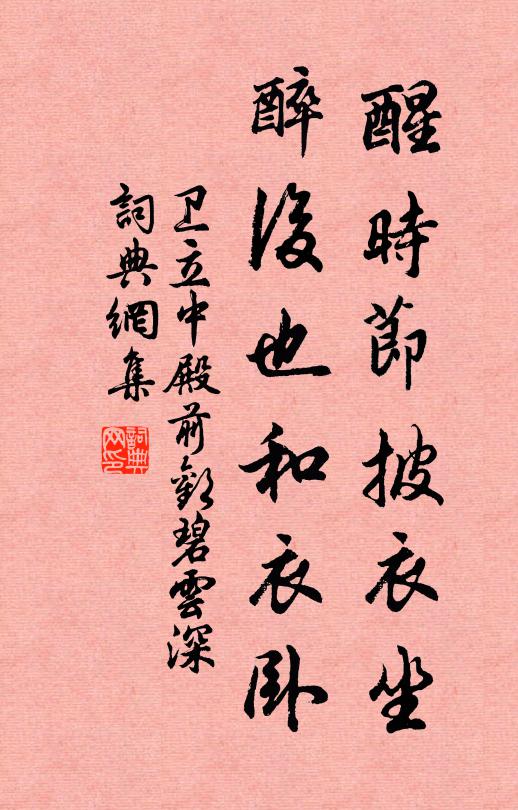 醒時節披衣坐
醉後也和衣卧
卫立中殿前歡碧雲深
詞典網集
詞典
网印